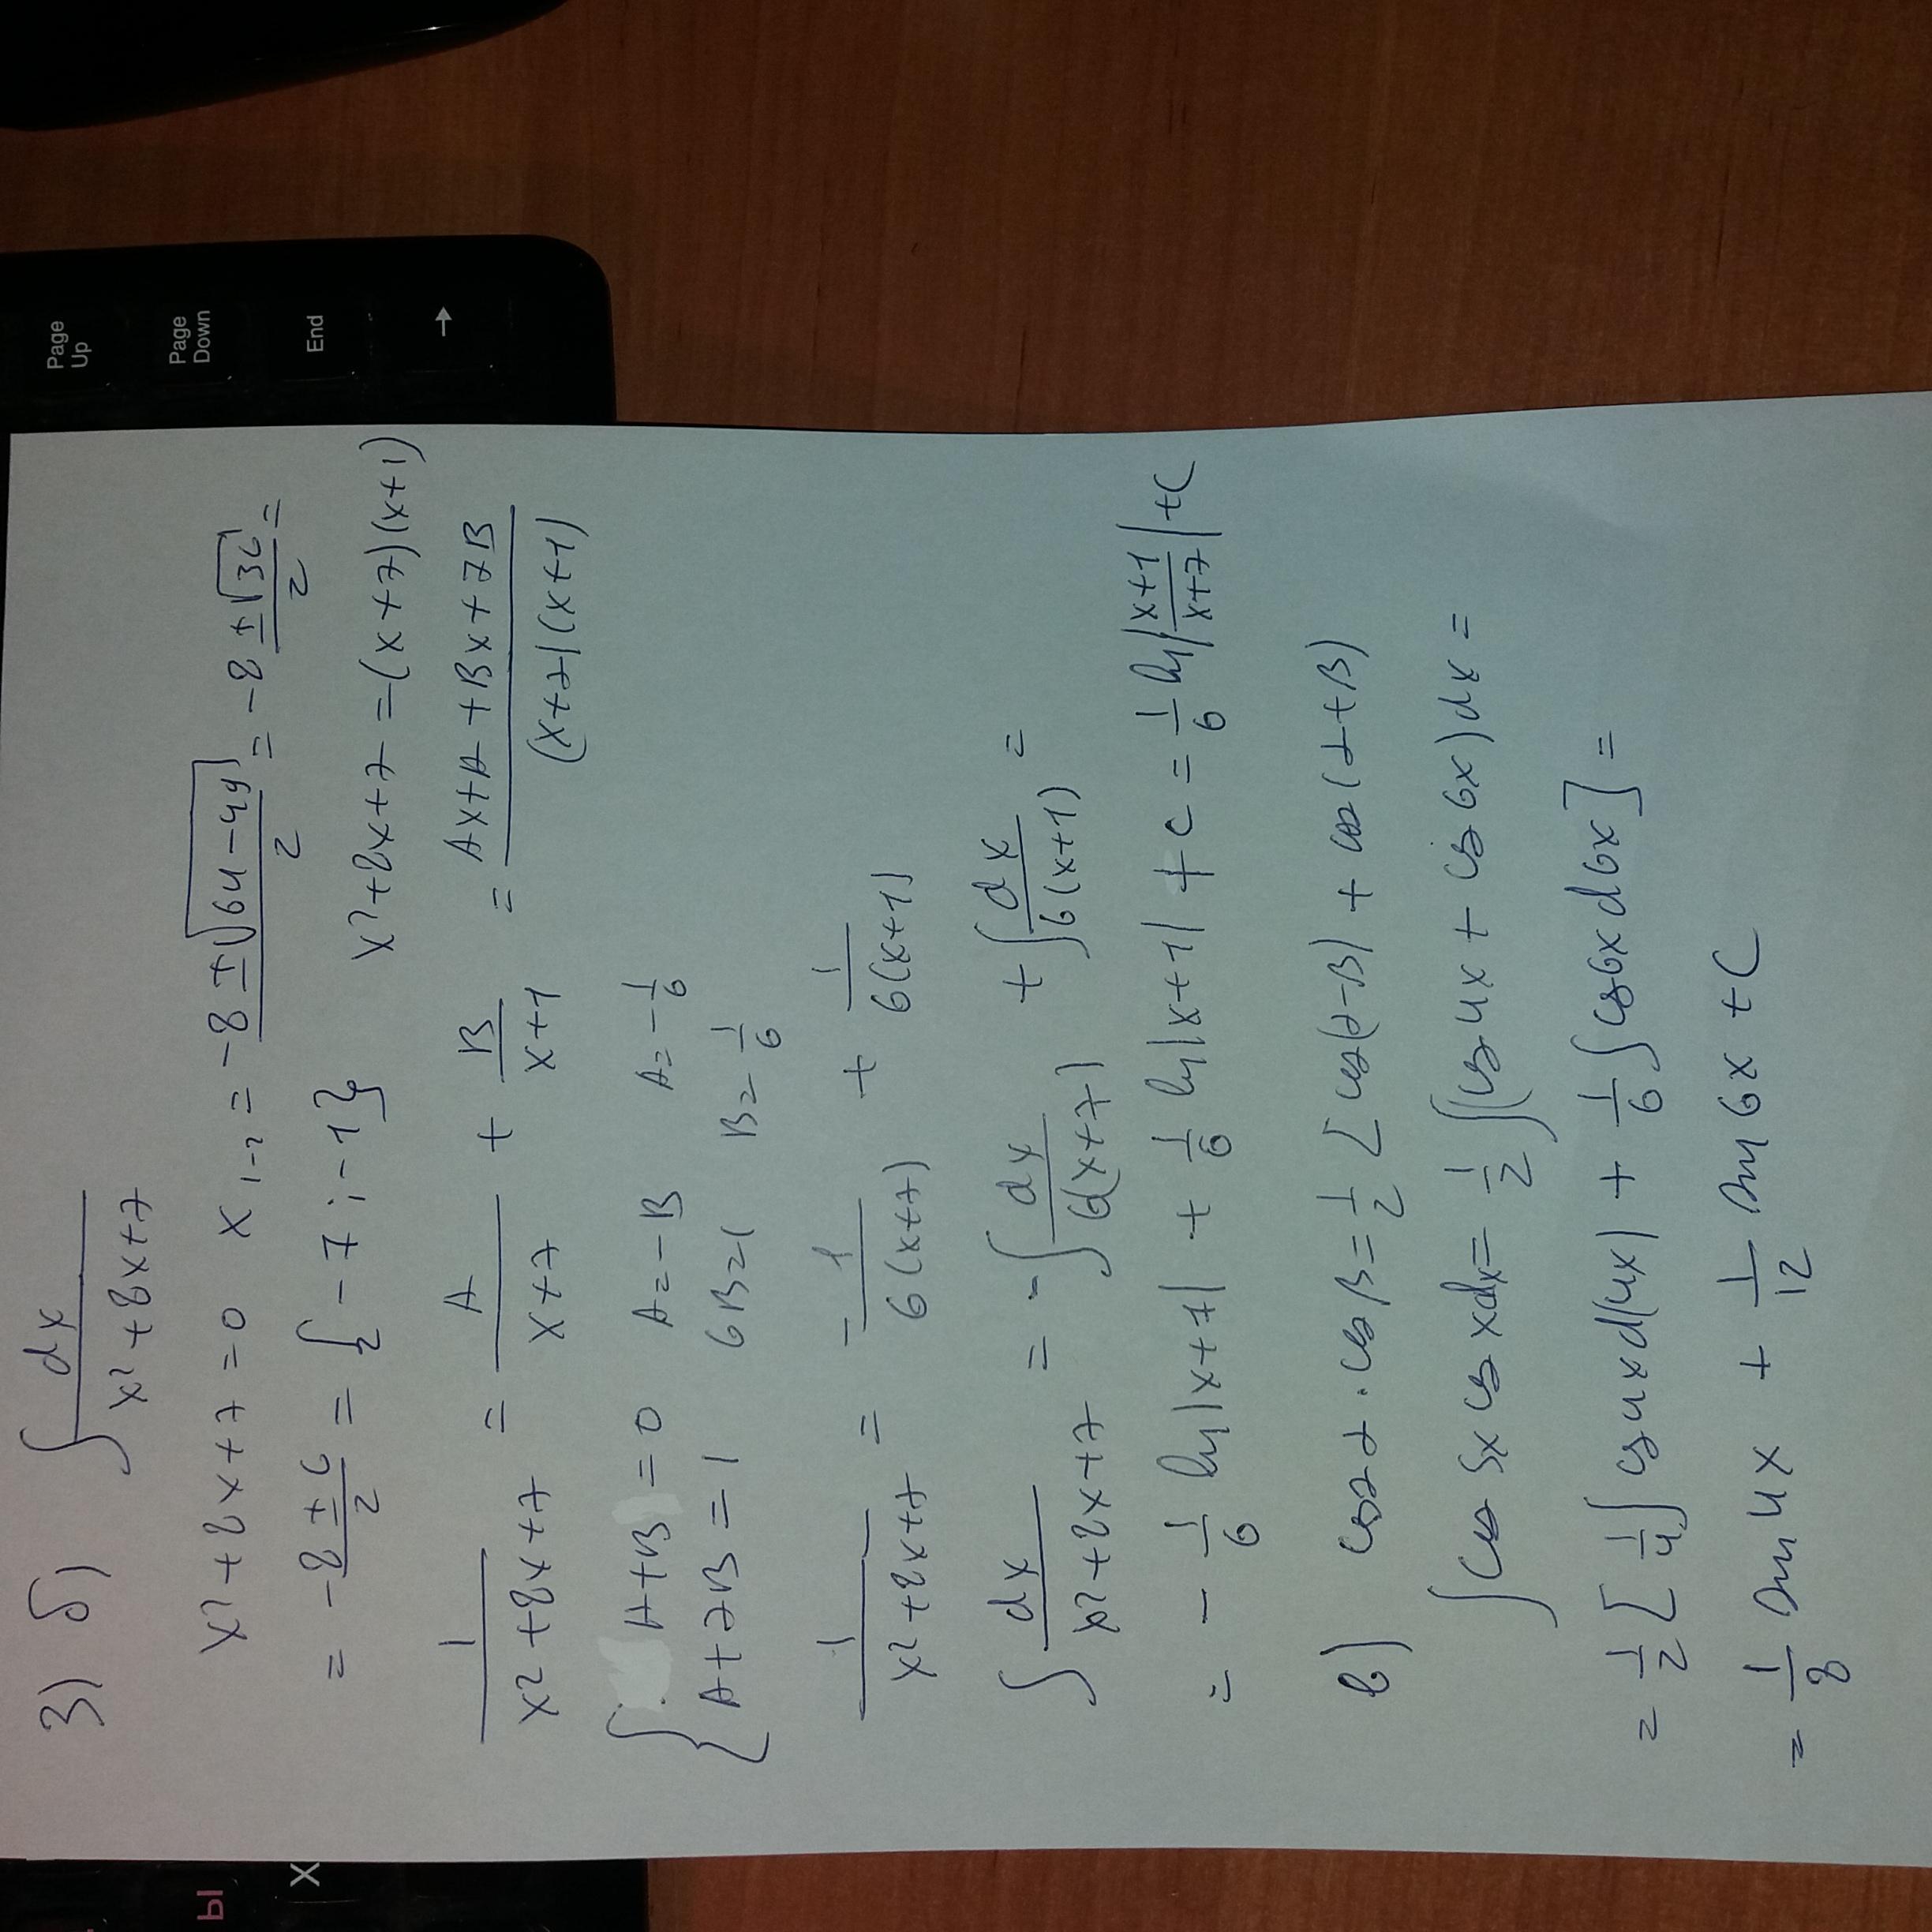 3) б) ∫ dx / (x² + 8x + 7)
x² + 8x + 7 = 0 x₁₋₂ = (-8 ± √(64 - 4·7)) / 2 = (-8 ± √36) / 2 =
= (-8 ± 6) / 2 = {-7; -1} x² + 8x + 7 = (x + 7)(x + 1)
1 / (x² + 8x + 7) = A / (x + 7) + B / (x + 1) = (Ax + A + Bx + 7B) / ((x + 7)(x + 1))
{ A + B = 0 A = -B A = -1/6
A + 7B = 1 6B = 1 B = 1/6
1 / (x² + 8x + 7) = - 1 / 6(x + 7) + 1 / 6(x + 1)
∫ dx / (x² + 8x + 7) = - ∫ dx / 6(x + 7) + ∫ dx / 6(x + 1) =
= - 1/6 ln|x + 7| + 1/6 ln|x + 1| + C = 1/6 ln|(x + 1) / (x + 7)| + C
в) cos α · cos β = 1/2 [cos(α - β) + cos(α + β)]
∫ cos 5x cos x dx = 1/2 ∫(cos 4x + cos 6x) dx =
= 1/2 [1/4 ∫ cos 4x d(4x) + 1/6 ∫ cos 6x d6x] =
= 1/8 sin 4x + 1/12 sin 6x + C
Page Up
Page Down
End
→
ы
X